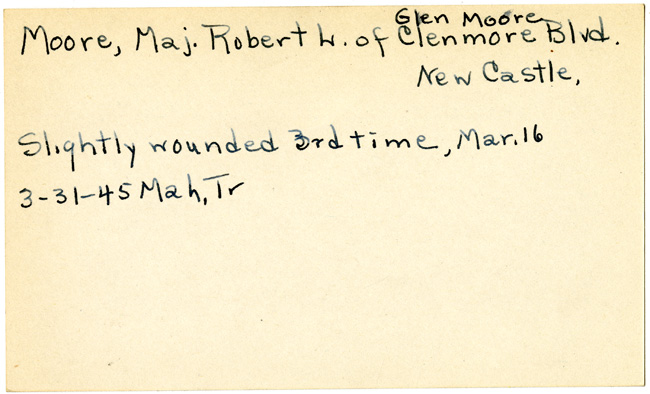 Glen Moore
Moore, Maj. Robert L. of Clenmore Blvd.
New Castle,
Slightly wounded 3rd time, Mar. 16
3-31-45 Mah, Tr